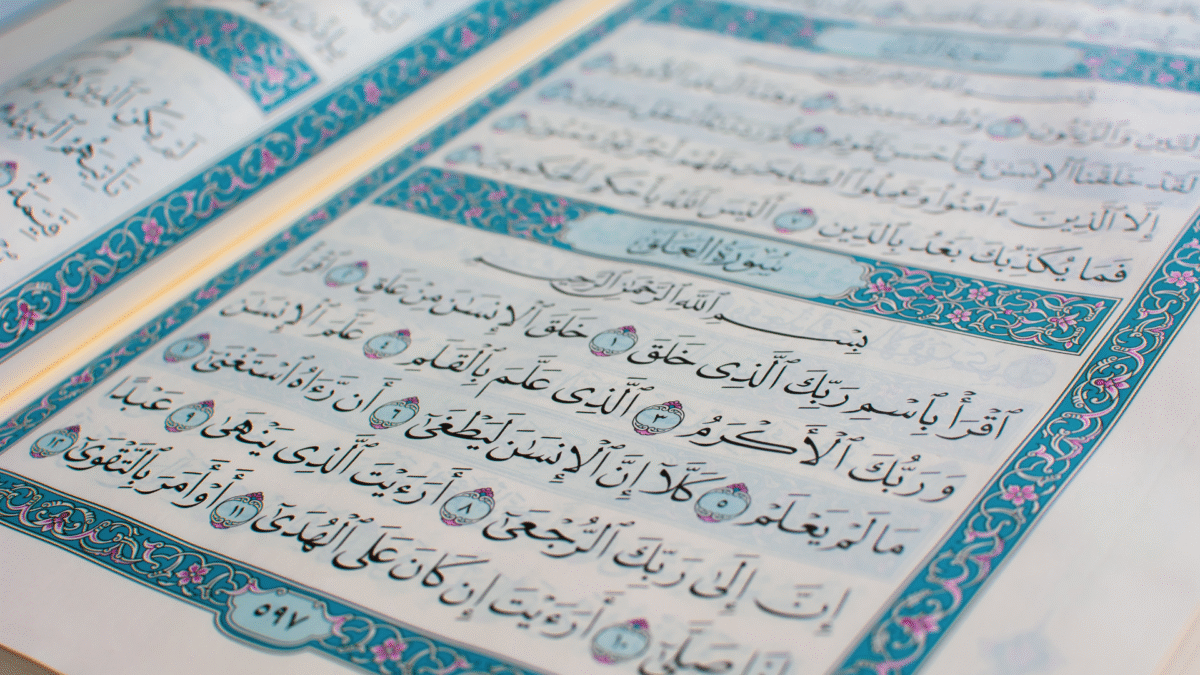 وَٱلزَّيْتُونِ ١ وَطُورِ سِينِينَ
لَقَدْ خَلَقْنَا ٱلْإِنسَٰنَ فِىٓ أَحْسَنِ تَقْوِيمٍ
إِلَّا ٱلَّذِينَ ءَامَنُوا۟ وَعَمِلُوا۟ ٱلصَّٰلِحَٰتِ فَلَهُمْ أَجْرٌ غَيْرُ مَمْنُونٍ
فَمَا يُكَذِّبُكَ بَعْدُ بِٱلدِّينِ ٧ أَلَيْسَ ٱللَّهُ بِأَحْكَمِ ٱلْحَٰكِمِينَ
سُورَةُ العَلَقِ
بِسْمِ ٱللَّهِ ٱلرَّحْمَٰنِ ٱلرَّحِيمِ
ٱقْرَأْ بِٱسْمِ رَبِّكَ ٱلَّذِى خَلَقَ ١ خَلَقَ ٱلْإِنسَٰنَ مِنْ عَلَقٍ ٢ ٱقْرَأْ
وَرَبُّكَ ٱلْأَكْرَمُ ٣ ٱلَّذِى عَلَّمَ بِٱلْقَلَمِ ٤ عَلَّمَ ٱلْإِنسَٰنَ
مَا لَمْ يَعْلَمْ ٥ كَلَّآ إِنَّ ٱلْإِنسَٰنَ لَيَطْغَىٰٓ ٦ أَن رَّءَاهُ ٱسْتَغْنَىٰٓ ٧
إِنَّ إِلَىٰ رَبِّكَ ٱلرُّجْعَىٰٓ ٨ أَرَءَيْتَ ٱلَّذِى يَنْهَىٰ ٩ عَبْدًا
إِذَا صَلَّىٰٓ ١٠ أَرَءَيْتَ إِن كَانَ عَلَى ٱلْهُدَىٰٓ ١١ أَوْ أَمَرَ بِٱلتَّقْوَىٰٓ ١٢
٥٩٧
لَمْ يَكُنِ ٱلَّذِينَ
تَأْتِيَهُمُ ٱلْبَيِّنَةُ